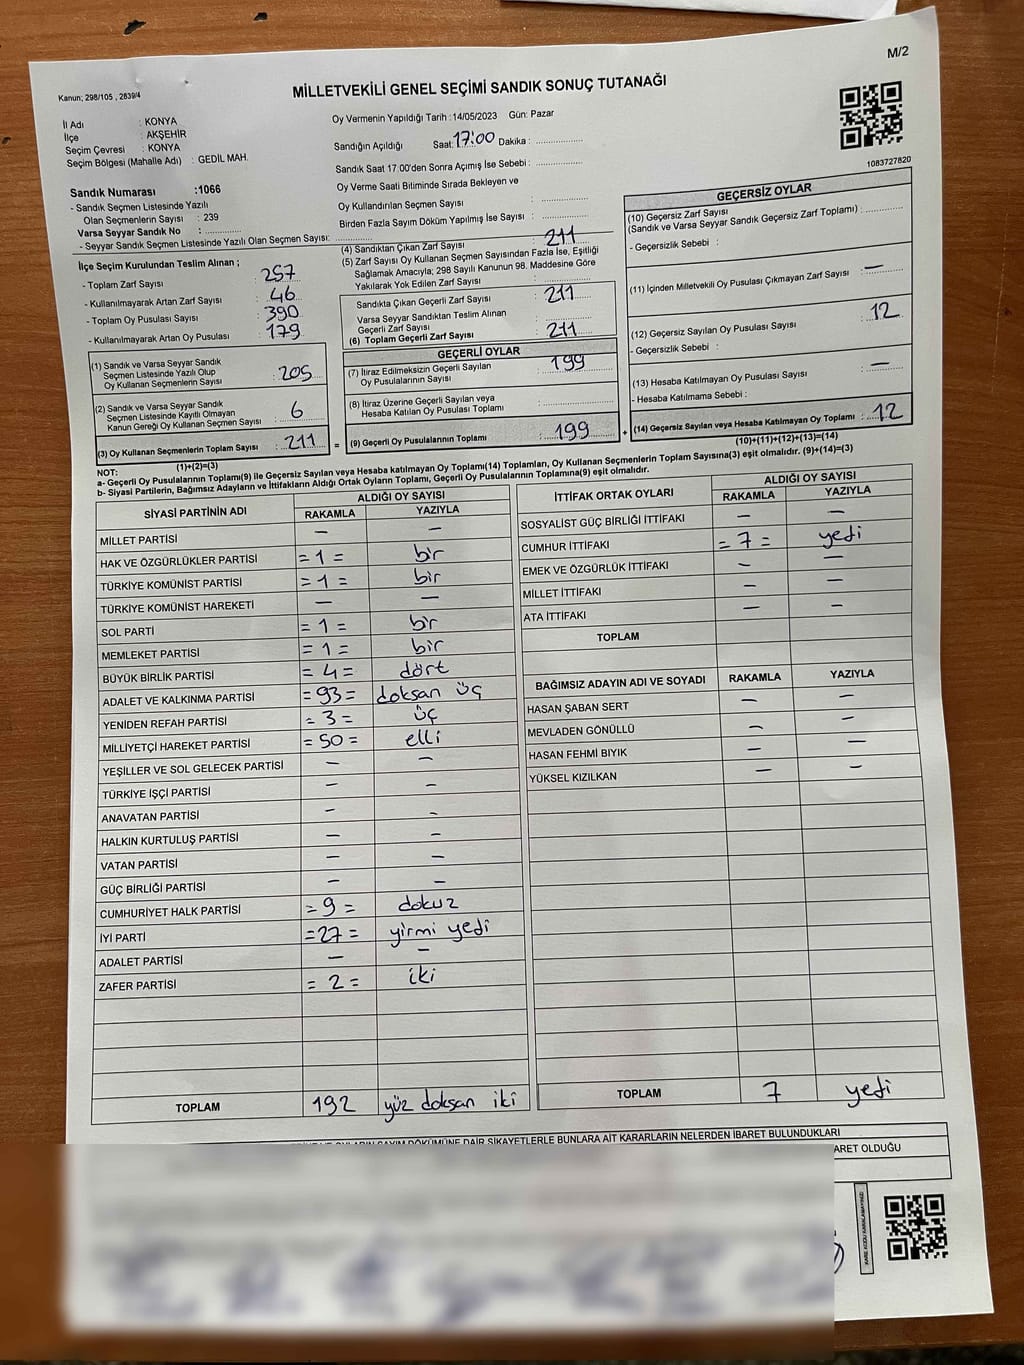 M/2
Kanun; 298/105 , 2839/4
MİLLETVEKİLİ GENEL SEÇİMİ SANDIK SONUÇ TUTANAĞI
İl Adı : KONYA
İlçe : AKŞEHİR
Seçim Çevresi : KONYA
Seçim Bölgesi (Mahalle Adı) : GEDİL MAH.
Sandık Numarası :1066
- Sandık Seçmen Listesinde Yazılı
Olan Seçmenlerin Sayısı : 239
Varsa Seyyar Sandık No :
- Seyyar Sandık Seçmen Listesinde Yazılı Olan Seçmen Sayısı:
Oy Vermenin Yapıldığı Tarih :14/05/2023 Gün: Pazar
Sandığın Açıldığı Saat: 17:00 Dakika :
Sandık Saat 17.00'den Sonra Açımış İse Sebebi :
Oy Verme Saati Bitiminde Sırada Bekleyen ve
Oy Kullandırılan Seçmen Sayısı :
Birden Fazla Sayım Döküm Yapılmış İse Sayısı :
1083727820
İlçe Seçim Kurulundan Teslim Alınan ;
- Toplam Zarf Sayısı : 257
- Kullanılmayarak Artan Zarf Sayısı : 46
- Toplam Oy Pusulası Sayısı : 390
- Kullanılmayarak Artan Oy Pusulası : 179
(1) Sandık ve Varsa Seyyar Sandık
Seçmen Listesinde Yazılı Olup
Oy Kullanan Seçmenlerin Sayısı : 205
(2) Sandık ve Varsa Seyyar Sandık
Seçmen Listesinde Kayıtlı Olmayan
Kanun Gereği Oy Kullanan Seçmen Sayısı : 6
(3) Oy Kullanan Seçmenlerin Toplam Sayısı : 211 =
(1)+(2)=(3)
(4) Sandıktan Çıkan Zarf Sayısı : 211
(5) Zarf Sayısı Oy Kullanan Seçmen Sayısından Fazla İse, Eşitliği
Sağlamak Amacıyla; 298 Sayılı Kanunun 98. Maddesine Göre
Yakılarak Yok Edilen Zarf Sayısı :
Sandıkta Çıkan Geçerli Zarf Sayısı : 211
Varsa Seyyar Sandıktan Teslim Alınan
Geçerli Zarf Sayısı :
(6) Toplam Geçerli Zarf Sayısı : 211
GEÇERLİ OYLAR
(7) İtiraz Edilmeksizin Geçerli Sayılan
Oy Pusulalarının Sayısı : 199
(8) İtiraz Üzerine Geçerli Sayılan veya
Hesaba Katılan Oy Pusulası Toplamı :
(9) Geçerli Oy Pusulalarının Toplamı : 199 +
GEÇERSİZ OYLAR
(10) Geçersiz Zarf Sayısı
(Sandık ve Varsa Seyyar Sandık Geçersiz Zarf Toplamı) :
- Geçersizlik Sebebi :
(11) İçinden Milletvekili Oy Pusulası Çıkmayan Zarf Sayısı : —
(12) Geçersiz Sayılan Oy Pusulası Sayısı : 12
- Geçersizlik Sebebi :
(13) Hesaba Katılmayan Oy Pusulası Sayısı : —
- Hesaba Katılmama Sebebi :
(14) Geçersiz Sayılan veya Hesaba Katılmayan Oy Toplamı : 12
(10)+(11)+(12)+(13)=(14)
NOT:
a- Geçerli Oy Pusulalarının Toplamı(9) ile Geçersiz Sayılan veya Hesaba katılmayan Oy Toplamı(14) Toplamları, Oy Kullanan Seçmenlerin Toplam Sayısına(3) eşit olmalıdır. (9)+(14)=(3)
b- Siyasi Partilerin, Bağımsız Adayların ve İttifakların Aldığı Ortak Oyların Toplamı, Geçerli Oy Pusulalarının Toplamına(9) eşit olmalıdır.
SİYASİ PARTİNİN ADI ALDIĞI OY SAYISI
RAKAMLA YAZIYLA
MİLLET PARTİSİ — —
HAK VE ÖZGÜRLÜKLER PARTİSİ =1= bir
TÜRKİYE KOMÜNİST PARTİSİ =1= bir
TÜRKİYE KOMÜNİST HAREKETİ — —
SOL PARTİ =1= bir
MEMLEKET PARTİSİ =1= bir
BÜYÜK BİRLİK PARTİSİ =4= dört
ADALET VE KALKINMA PARTİSİ =93= doksan üç
YENİDEN REFAH PARTİSİ =3= üç
MİLLİYETÇİ HAREKET PARTİSİ =50= elli
YEŞİLLER VE SOL GELECEK PARTİSİ — —
TÜRKİYE İŞÇİ PARTİSİ — —
ANAVATAN PARTİSİ — —
HALKIN KURTULUŞ PARTİSİ — —
VATAN PARTİSİ — —
GÜÇ BİRLİĞİ PARTİSİ — —
CUMHURİYET HALK PARTİSİ =9= dokuz
İYİ PARTİ =27= yirmi yedi
ADALET PARTİSİ — —
ZAFER PARTİSİ =2= iki
TOPLAM 192 yüz doksan iki
İTTİFAK ORTAK OYLARI ALDIĞI OY SAYISI
RAKAMLA YAZIYLA
SOSYALİST GÜÇ BİRLİĞİ İTTİFAKI — —
CUMHUR İTTİFAKI =7= yedi
EMEK VE ÖZGÜRLÜK İTTİFAKI — —
MİLLET İTTİFAKI — —
ATA İTTİFAKI — —
TOPLAM
BAĞIMSIZ ADAYIN ADI VE SOYADI RAKAMLA YAZIYLA
HASAN ŞABAN SERT — —
MEVLADEN GÖNÜLLÜ — —
HASAN FEHMİ BIYIK — —
YÜKSEL KIZILKAN — —
TOPLAM 7 yedi
OYLARIN SAYIM DÖKÜMÜNE DAİR ŞİKAYETLERLE BUNLARA AİT KARARLARIN NELERDEN İBARET BULUNDUKLARI
ARET OLDUĞU